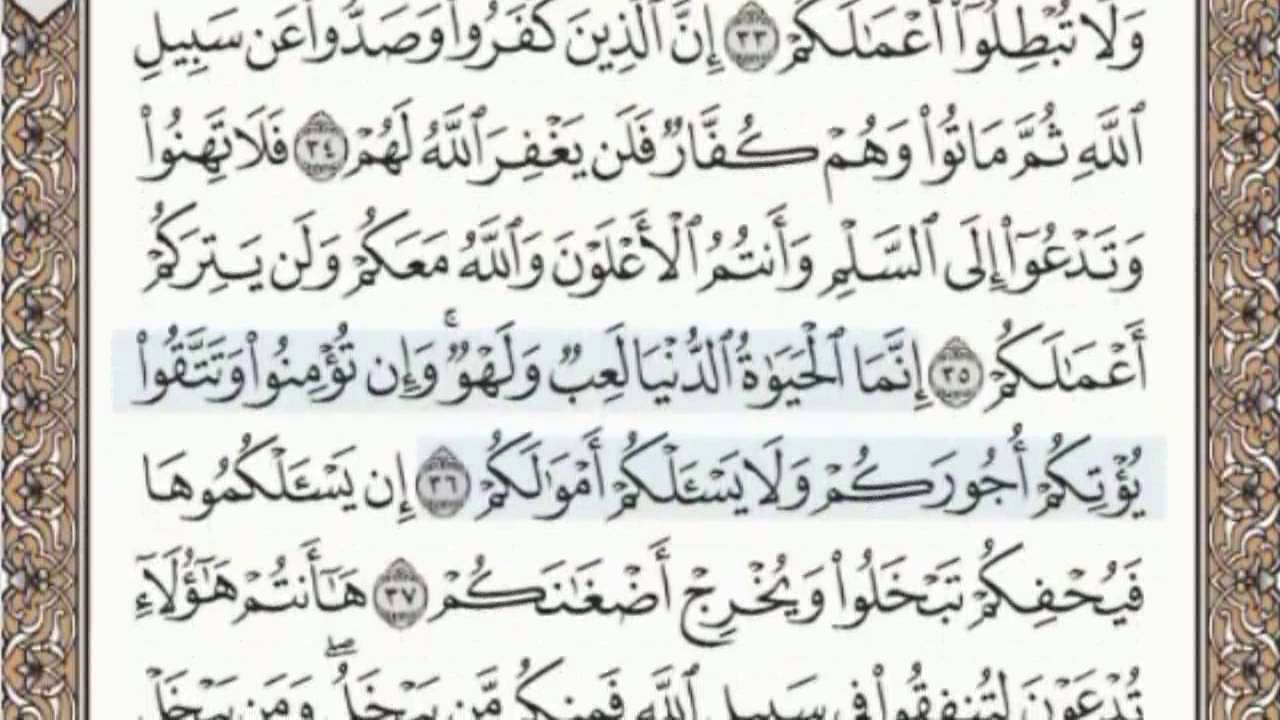 وَلَا تُبْطِلُوٓا۟ أَعْمَـٰلَكُمْ ٣٣ إِنَّ ٱلَّذِينَ كَفَرُوا۟ وَصَدُّوا۟ عَن سَبِيلِ
ٱللَّهِ ثُمَّ مَاتُوا۟ وَهُمْ كُفَّارٌ فَلَن يَغْفِرَ ٱللَّهُ لَهُمْ ٣٤ فَلَا تَهِنُوا۟
وَتَدْعُوٓا۟ إِلَى ٱلسَّلْمِ وَأَنتُمُ ٱلْأَعْلَوْنَ وَٱللَّهُ مَعَكُمْ وَلَن يَتِرَكُمْ
أَعْمَـٰلَكُمْ ٣٥ إِنَّمَا ٱلْحَيَوٰةُ ٱلدُّنْيَا لَعِبٌ وَلَهْوٌ ۚ وَإِن تُؤْمِنُوا۟ وَتَتَّقُوا۟
يُؤْتِكُمْ أُجُورَكُمْ وَلَا يَسْـَٔلْكُمْ أَمْوَٰلَكُمْ ٣٦ إِن يَسْـَٔلْكُمُوهَا
فَيُحْفِكُمْ تَبْخَلُوا۟ وَيُخْرِجْ أَضْغَـٰنَكُمْ ٣٧ هَـٰٓأَنتُمْ هَـٰٓؤُلَآءِ
تُدْعَوْنَ لِتُنفِقُوا۟ فِى سَبِيلِ ٱللَّهِ فَمِنكُم مَّن يَبْخَلُ ۖ وَمَن يَبْخَلْ